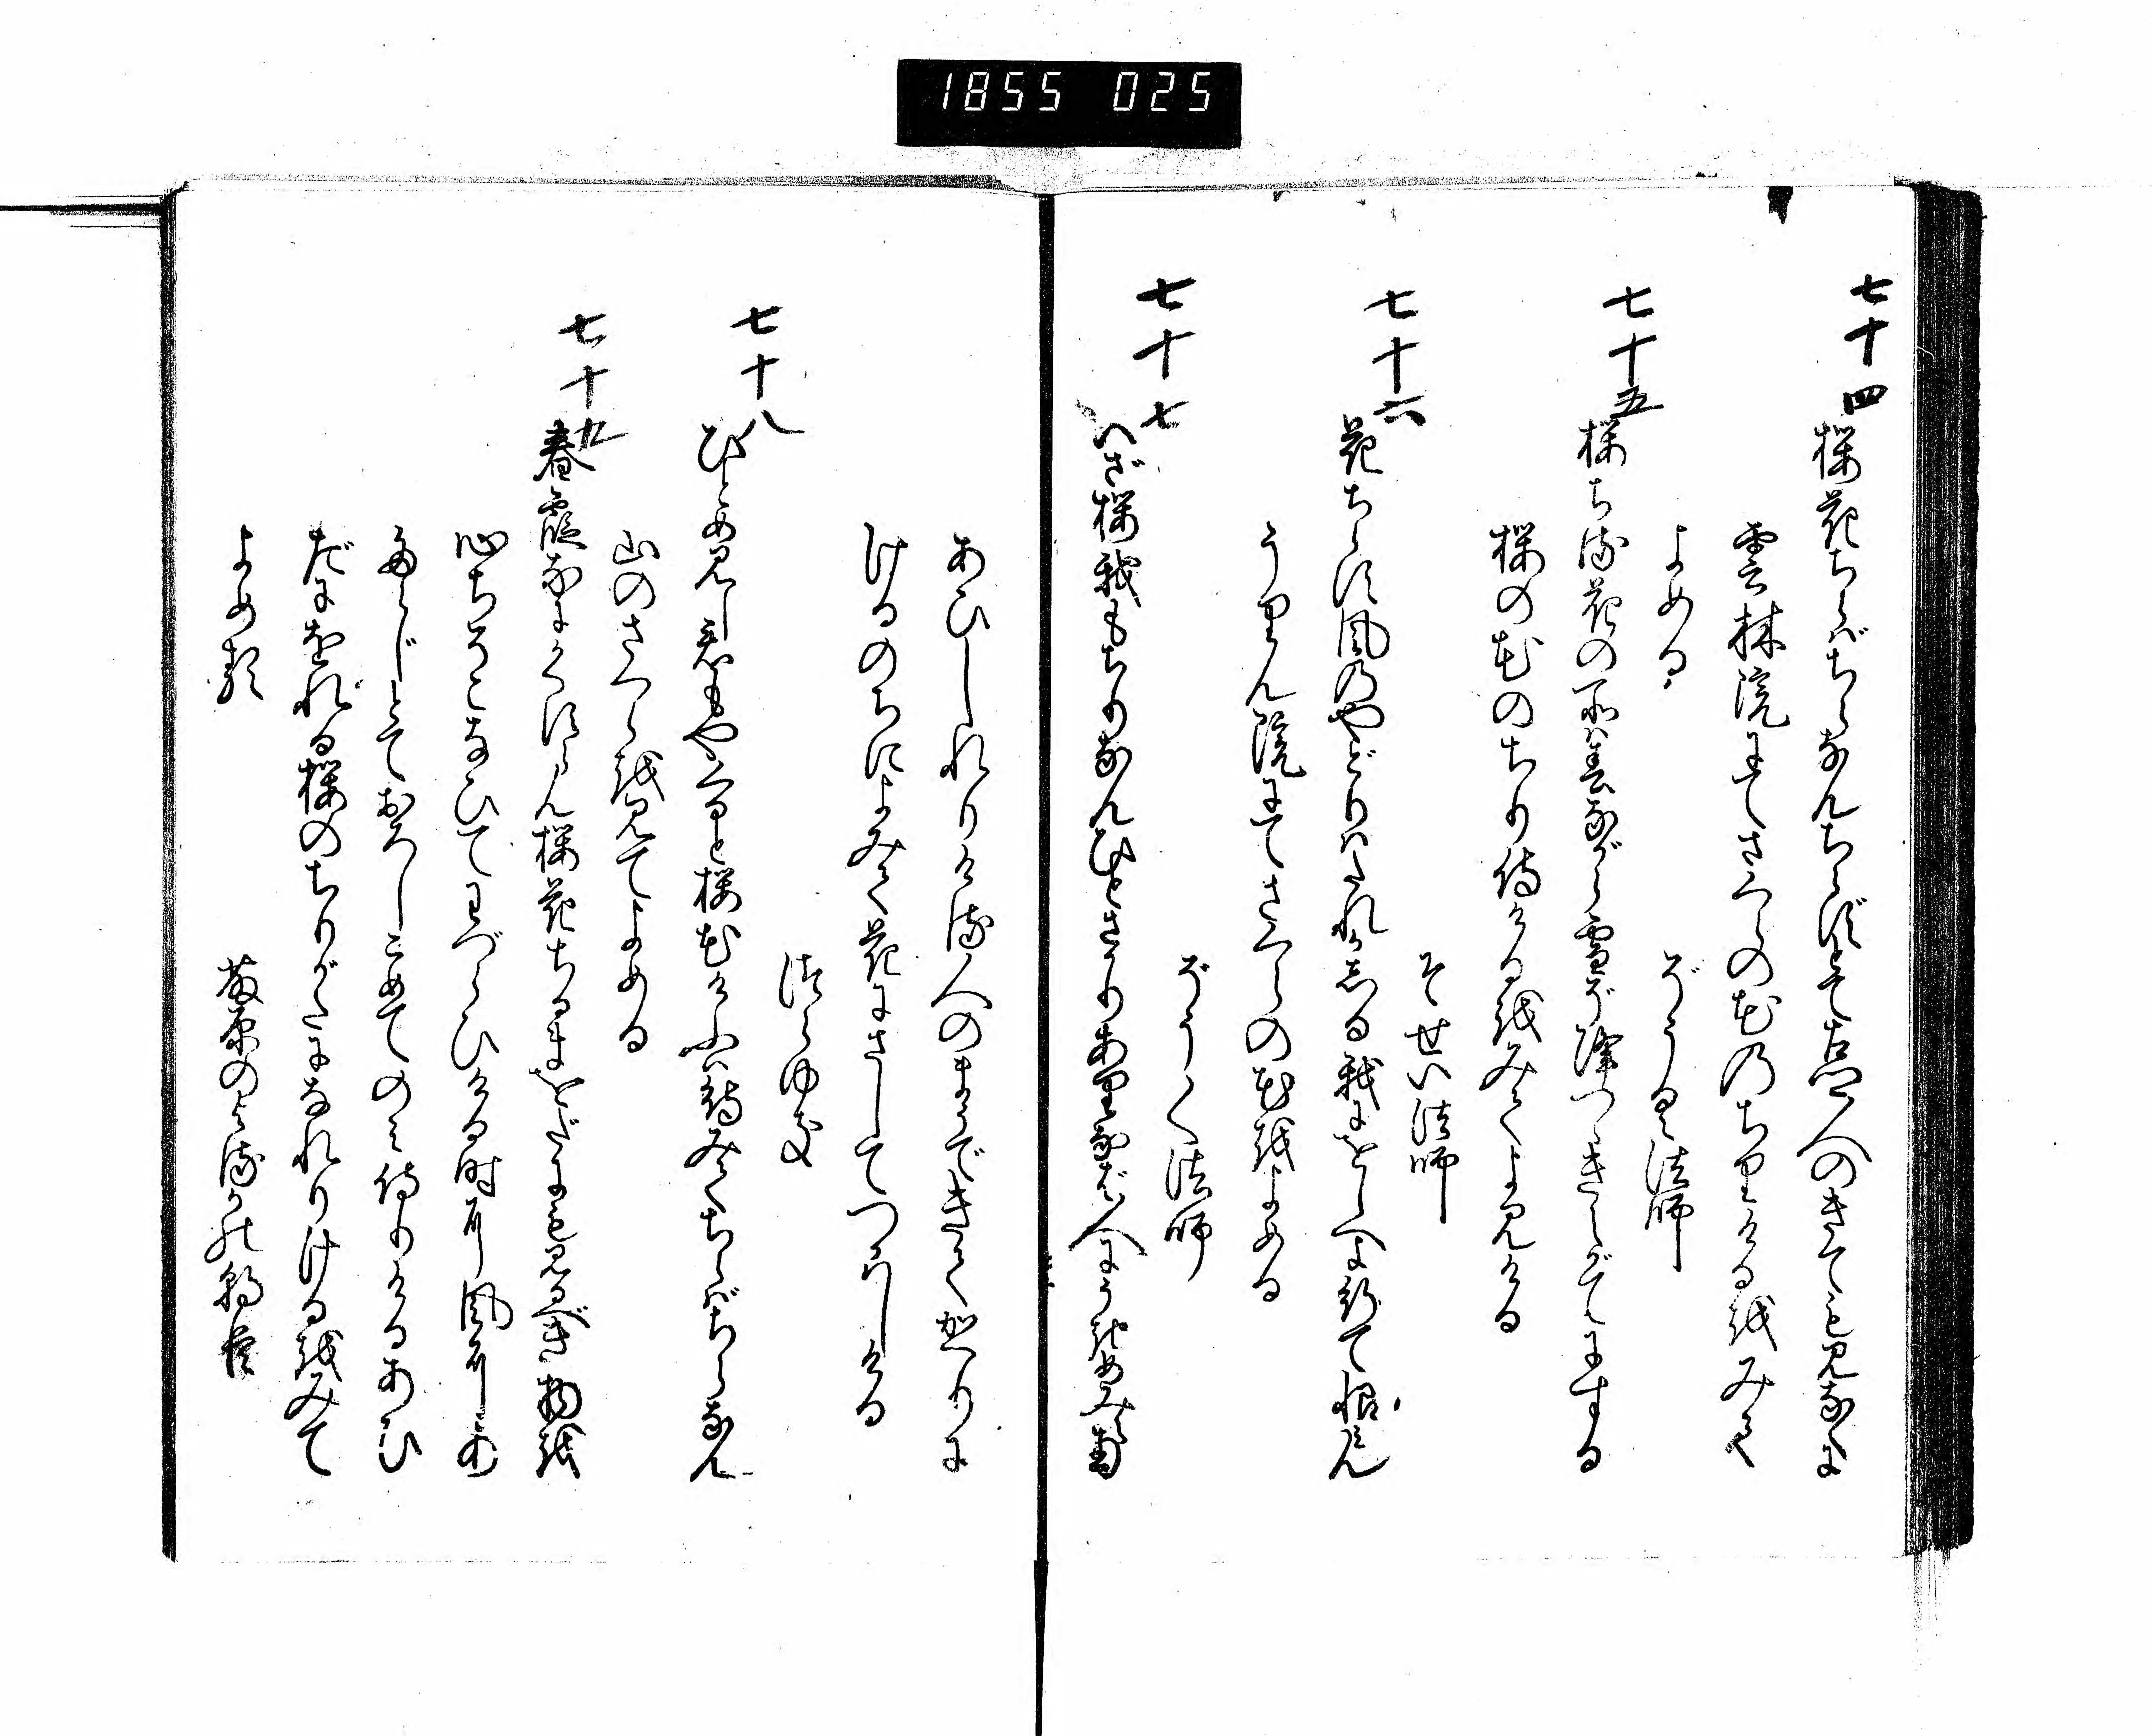 1855 025
七十四
桜花ちらばちらなんちらずとて古人のきても見なくに
雲林院にてさくらの花のちりける越みて
よめる
ぞうく法師
七十五
桜ちる花の所は春ながら雪ぞ降つゝきえがてにする
桜の花のちり侍ける越みてよみける
そせい法師
七十六
花ちらす風のやどりはたれかしる我にをしへよ行て恨みん
うりん院にてさくらの花越よめる
ぞうく法師
七十七
いざ桜我もちりなんひとさかりありなば人にうきめみえ南
あひしれりける人のまうできてかへりに
けるのちによみて花にさしてつかはしける
つらゆき
七十八
ひとめ見し君もやくると桜花けふは待みてちらばちらなん
山のさくら越見てよめる
七十九
春霞なにかくすらん桜花ちるまをだにも見るべき物越
心ちそこなひてわづらひける時に風にあ
たらじとておろしこめてのみ侍りけるあひ
だにをれる桜のちりがたになれりける越みて
よめる
藤原のよるかの朝臣